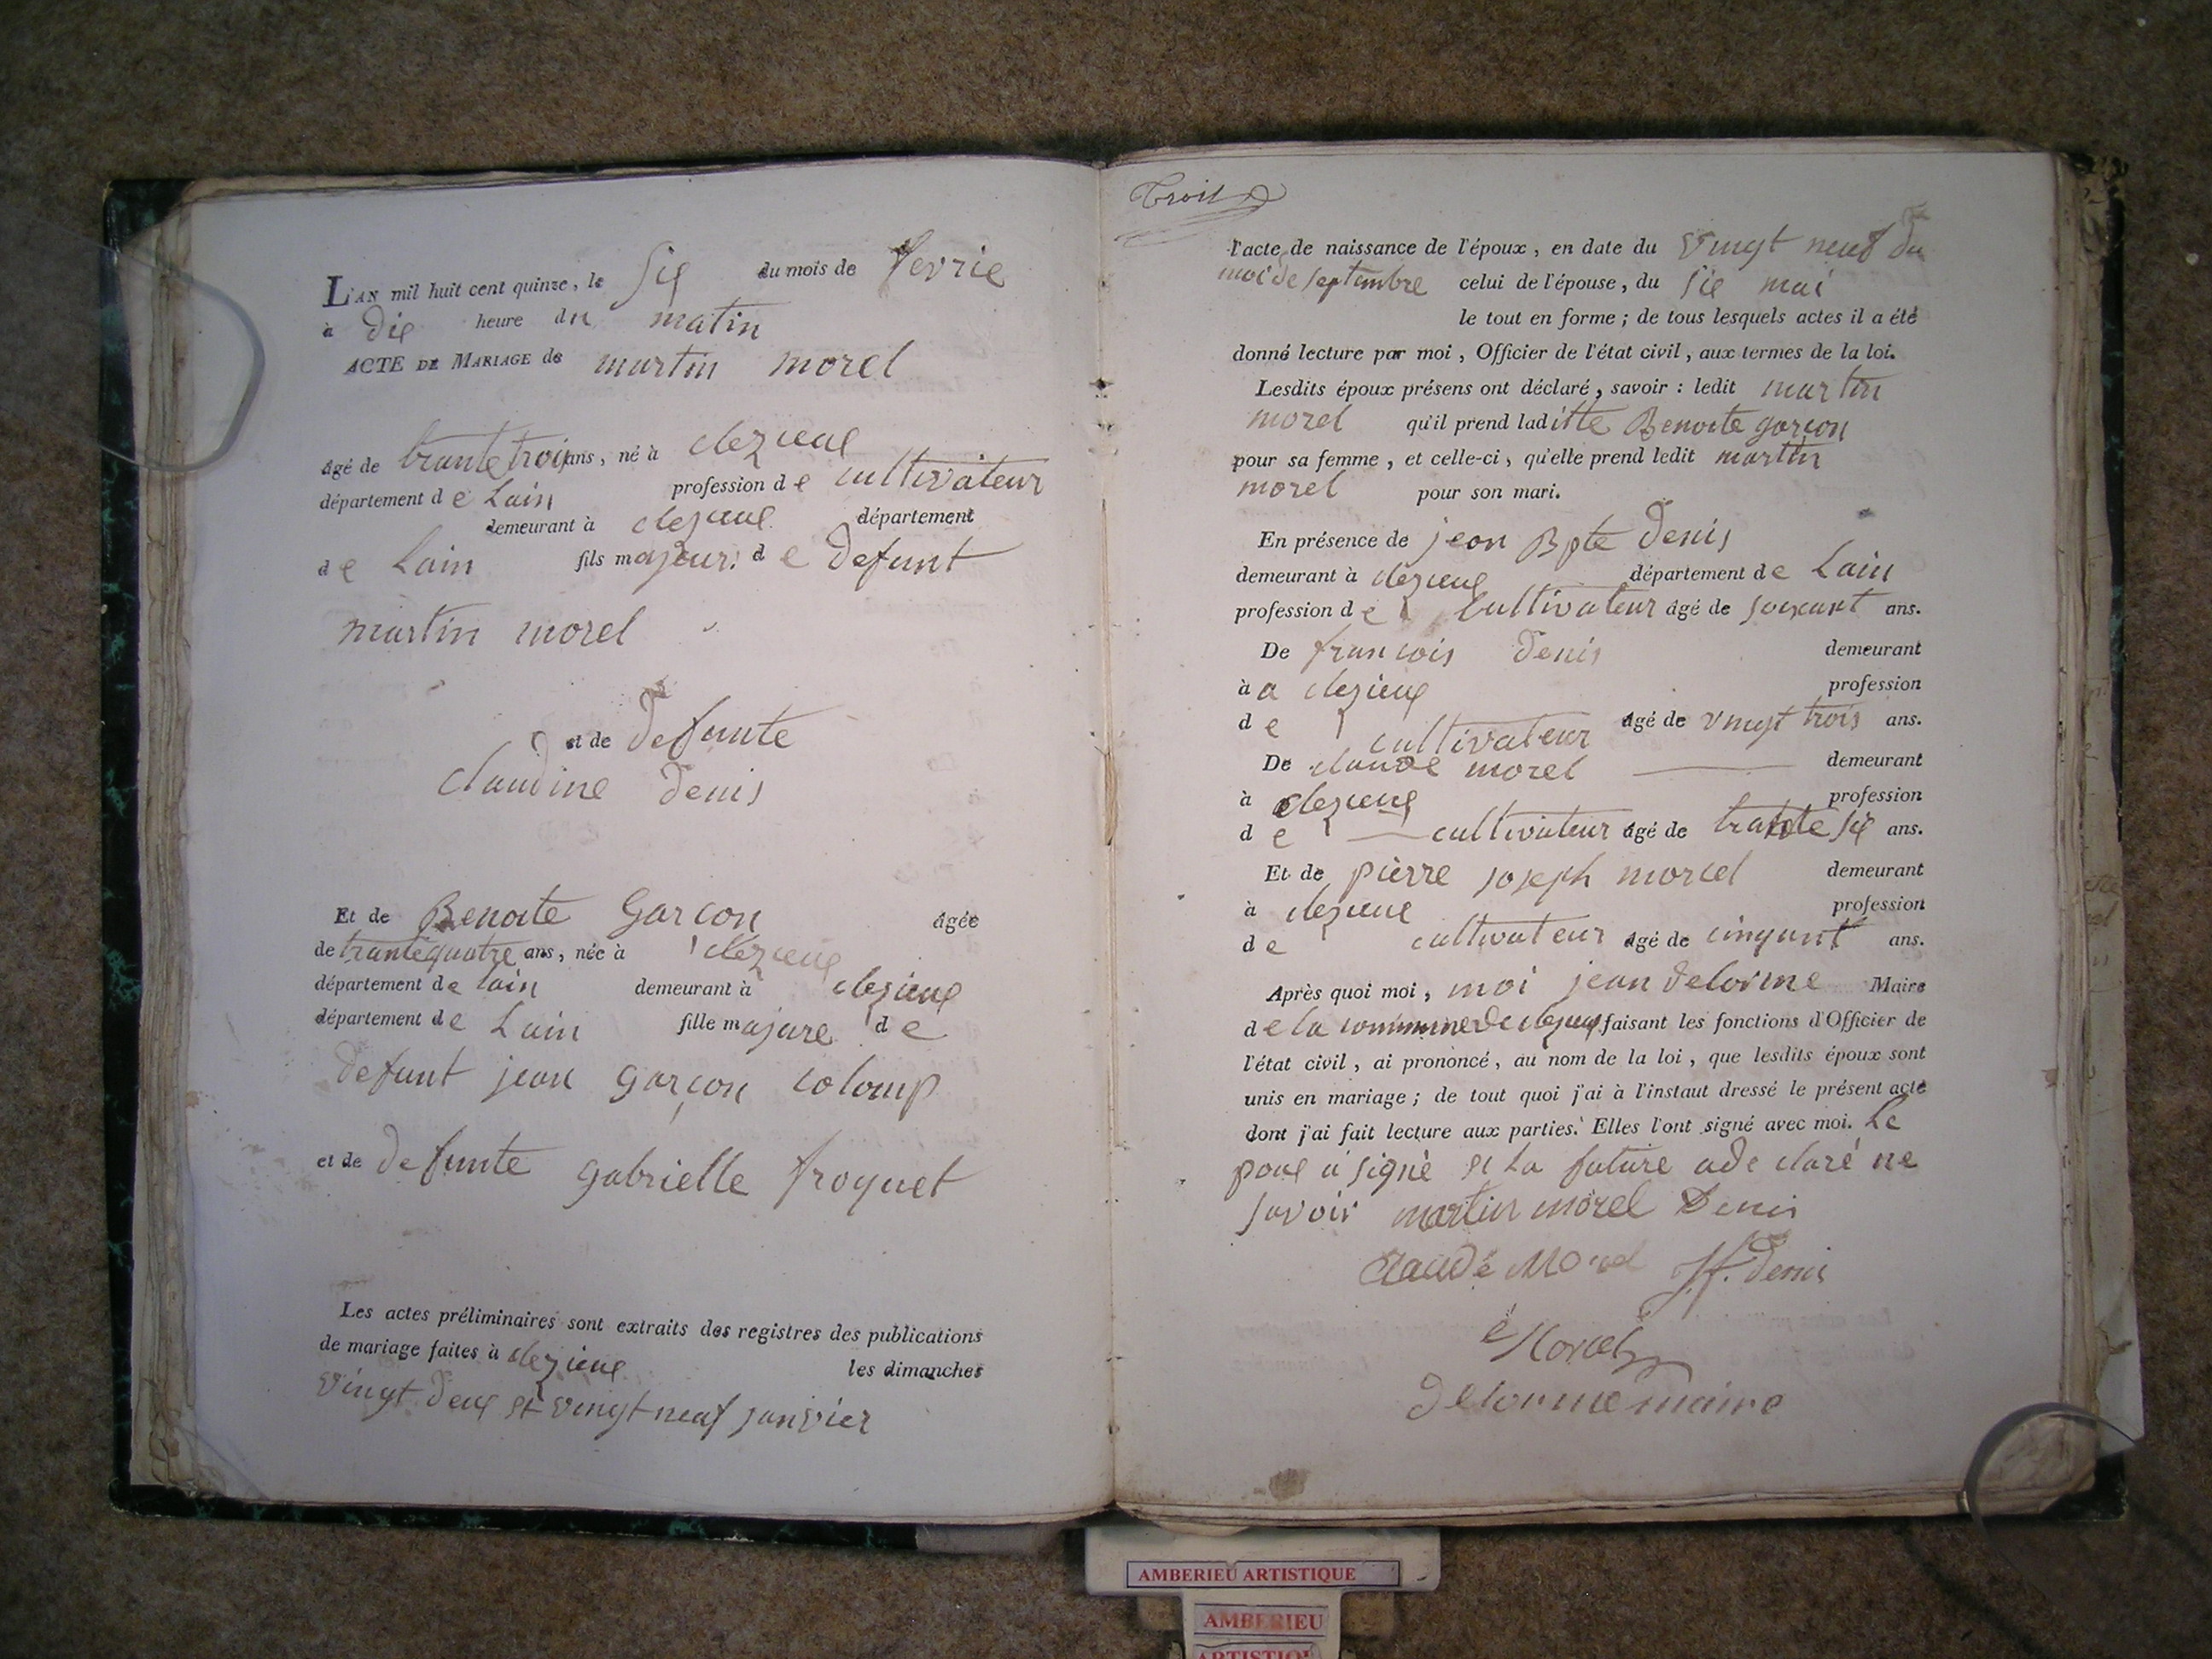 L'AN mil huit cent quinze, le Six du mois de fevrie
à dix heure du matin
ACTE DE MARIAGE de martin morel
âgé de trante trois ans, né à clezieux
département de Lain profession de cultivateur
demeurant à clezieux département
de Lain fils majeur de defunt
martin morel
et de defunte
claudine denis
Et de Benoite Garçon âgée
de trante quatre ans, née à clezieux
département de lain demeurant à clezieux
département de Lain fille majare de
defunt jean garçon coloup
et de defunte gabrielle froquet
Les actes préliminaires sont extraits des registres des publications
de mariage faites à clezieux les dimanches
vingt deux et vingt neuf janvier
Trois
l'acte de naissance de l'époux, en date du vingt neuf du
moi de septembre celui de l'épouse, du six mai
le tout en forme; de tous lesquels actes il a été
donné lecture par moi, Officier de l'état civil, aux termes de la loi.
Lesdits époux présens ont déclaré, savoir: ledit martin
morel qu'il prend laditte Benoite garçon
pour sa femme, et celle-ci, qu'elle prend ledit martin
morel pour son mari.
En présence de jean Bpte Denis
demeurant à clezieux département de Lain
profession de cultivateur âgé de soixant ans.
De francois Denis demeurant
à a clezieux profession
de cultivateur âgé de vingt trois ans.
De claude morel demeurant
à clezieux profession
de cultivateur âgé de trante six ans.
Et de pierre joseph morel demeurant
à clezieux profession
de cultivateur âgé de cinqant ans.
Après quoi moi, moi jean delorme Maire
de la commune de clezieux faisant les fonctions d'Officier de
l'état civil, ai prononcé, au nom de la loi, que lesdits époux sont
unis en mariage; de tout quoi j'ai à l'instaut dressé le présent acte
dont j'ai fait lecture aux parties. Elles l'ont signé avec moi. Le
poux a signé et la future a de claré ne
savoir martin morel Denis
Claude Morel J f. denis
Morel
delorme maire
AMBERIEU ARTISTIQUE
AMBERIEU
ARTISTIQUE